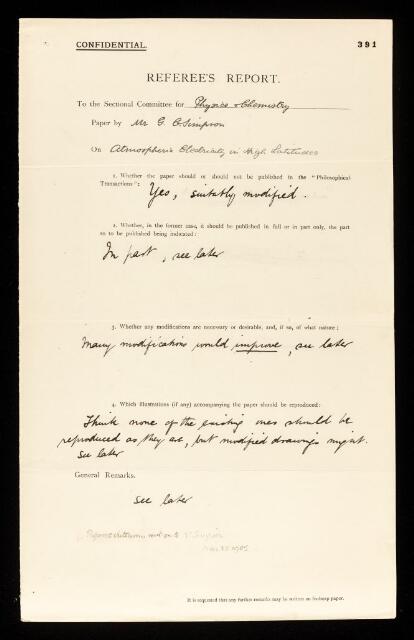 CONFIDENTIAL.
391
REFEREE'S REPORT.
To the Sectional Committee for Physics & Chemistry
Paper by Mr G. C. Simpson
On Atmospheric Electricity in High Latitudes
1. Whether the paper should or should not be published in the "Philosophical
Transactions":
Yes, suitably modified.
2. Whether, in the former case, it should be published in full or in part only, the part
so to be published being indicated:
In part, see later
3. Whether any modifications are necessary or desirable, and, if so, of what nature:
Many modifications would improve, see later
4. Which illustrations (if any) accompanying the paper should be reproduced:
Think none of the existing ones should be
reproduced as they are, but modified drawings might.
see later
General Remarks.
see later
1905
It is requested that any further remarks may be written on foolscap paper.